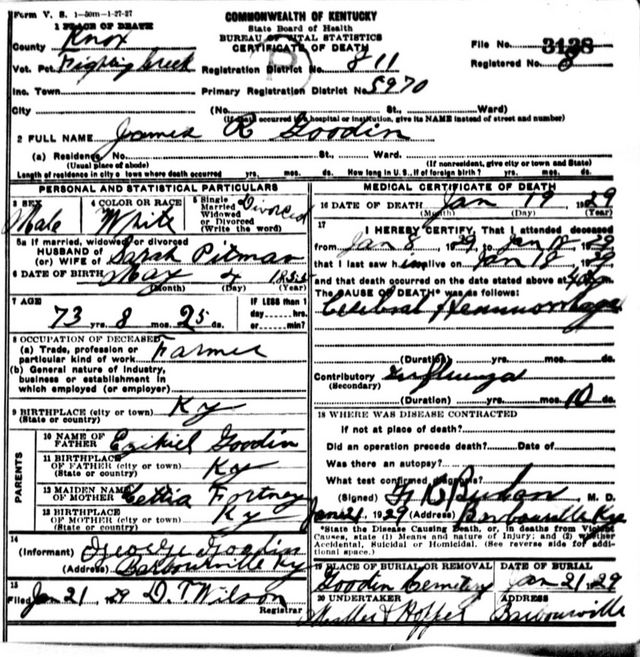 Form V. S. 1-50m-1-27-27
COMMONWEALTH OF KENTUCKY
State Board of Health
BUREAU OF VITAL STATISTICS
CERTIFICATE OF DEATH
1 PLACE OF DEATH
County Knox
File No. 3138
Vot. Pct. Fighting Creek
Registration District No. 811
Registered No. 8
Inc. Town
Primary Registration District No. 5970
City (No. St., Ward)
(If death occurred in a hospital or institution, give its NAME instead of street and number)
2 FULL NAME James R Goodin
(a) Residence, No. St., Ward.
(Usual place of abode) (If nonresident, give city or town and State)
Length of residence in city or town where death occurred yrs. mos. ds. How long in U. S., if of foreign birth? yrs. mos. ds.
PERSONAL AND STATISTICAL PARTICULARS
3 SEX Male
4 COLOR OR RACE White
5 Single Married Widowed or Divorced (Write the word) Divorced
5a If married, widowed or divorced
HUSBAND of
(or) WIFE of Sarah Pitman
6 DATE OF BIRTH May
(Month) (Day) (Year)
7 AGE 73 yrs. 8 mos. 25 ds.
IF LESS than 1 day hrs. or min.
8 OCCUPATION OF DECEASED
(a) Trade, profession or particular kind of work Farmer
(b) General nature of industry, business or establishment in which employed (or employer)
9 BIRTHPLACE (city or town) Ky
(State or country)
PARENTS
10 NAME OF FATHER Ezikiel Goodin
11 BIRTHPLACE OF FATHER (city or town) Ky
(State or country)
12 MAIDEN NAME OF MOTHER Fortney
13 BIRTHPLACE OF MOTHER (city or town) Ky
(State or country)
14
(Informant) George Goodin
(Address) Barbourville Ky
15
Filed Jan 21, 1929 D. T Wilson
Registrar
MEDICAL CERTIFICATE OF DEATH
16 DATE OF DEATH Jan 19, 1929
(Month) (Day) (Year)
17
I HEREBY CERTIFY, That I attended deceased
from Jan 8, 1929, to Jan 18, 1929
that I last saw him alive on Jan 18, 1929
and that death occurred on the date stated above at
The CAUSE OF DEATH* was as follows:
Cerebral Hemmorrhage
(Duration) yrs. mos. ds.
Contributory Influenza
(Secondary)
(Duration) yrs. mos. 10 ds.
18 WHERE WAS DISEASE CONTRACTED
If not at place of death?
Did an operation precede death? Date of
Was there an autopsy?
What test confirmed diagnosis?
(Signed) M. D.
Jan 21, 1929 (Address) Barbourville Ky
*State the Disease Causing Death, or, in deaths from Violent Causes, state (1) Means and nature of Injury; and (2) whether Accidental, Suicidal or Homicidal. (See reverse side for additional space.)
19 PLACE OF BURIAL OR REMOVAL Goodin Cemetery
DATE OF BURIAL Jan 21, 1929
20 UNDERTAKER
ADDRESS Barbourville